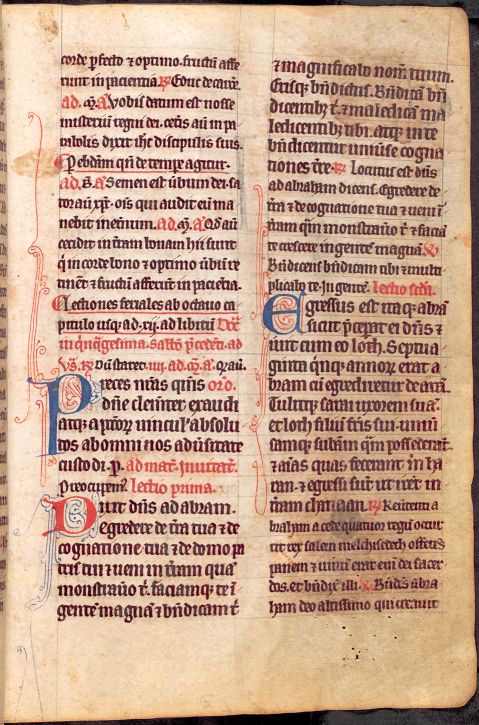 corde pfecto & optimo. fructū affe
runt in paciencia. R̷ Educ de carce.
ad. m̄. a. Vobis datum est nosse
misterium regni dei. ceteris aū in pa
rabolis dixit ihc discipulis suis.
Semen est ūbum dei. sa
tor aū xp̄c. oīs qui audit eū ma
nebit in et̄num. ad. m̄. a. Qd̄ aū
cecidit in t̄ram bonam hii sunt
q̄ in corde bono & optimo ūbū re
tinēt & fructū afferūt in paciētia.
Lectiones feriales ab octauo ca
pitulo usq̨ ad. xij. ad libitū
Preces nr̄as q̄s
dn̄e clemēter exaudi
atq̨ a pctōꝝ vinculꝭ absolu
tos ab omni nos adūsitate
custodi. p. ad mat̄. inuitat̄.
Preocupem̄. Lectio prima.
Dixit dn̄s ad abram.
Egredere de t̄ra tua & de
cognatione tua & de domo p̄
tris tui & ueni in t̄ram quā
monstrauō t̄. faciamq̨ te ī
gentē magnā & bn̄dicam t̄
& magnificabo nom̄ tuum.
Erisq̨ bn̄dictus. Bn̄dicā bn̄
dicentibꝫ t̄. & maledicā ma
ledicentibꝫ tibi. atq̨ in te
bn̄dicentur uniūse cogna
tiones t̄re. R̷ Locutus est dn̄s
ad abraham dicens. Egredere de
t̄ra & de cognatione tua & ueni ī
t̄ram q̄m monstrauō t̄. & faciā
te crescere in gentē magnā. V̷
Bn̄dicens bn̄dicam tibi & multi
plicabo te. In gentē. Lectio scda.
Egressus est itaq̨ abrā
sicut p̄cepat ei dn̄s &
iuit cum eo loth. Septua
ginta q̄nq̨ annoꝝ erat a
bram cū egrederetur de aran.
Tulitq̨ sarai uxorem suā.
et loth filiū fr̄is sui. uniū
samq̨ substān̄ q̄m possederāt.
& aīas quas fecerant in ha
ran. & egressi sunt ut irēt in
t̄ram chanaan. R̷ Reūtenti a
braham a cede quatuor regū occur
rit rex salem melchisedech offerēs
panem & uinū. erat eni dei sacer
dos. et bn̄dix̄ illi. V̷ Bn̄dꝭs abra
ham deo altissimo qui creauit